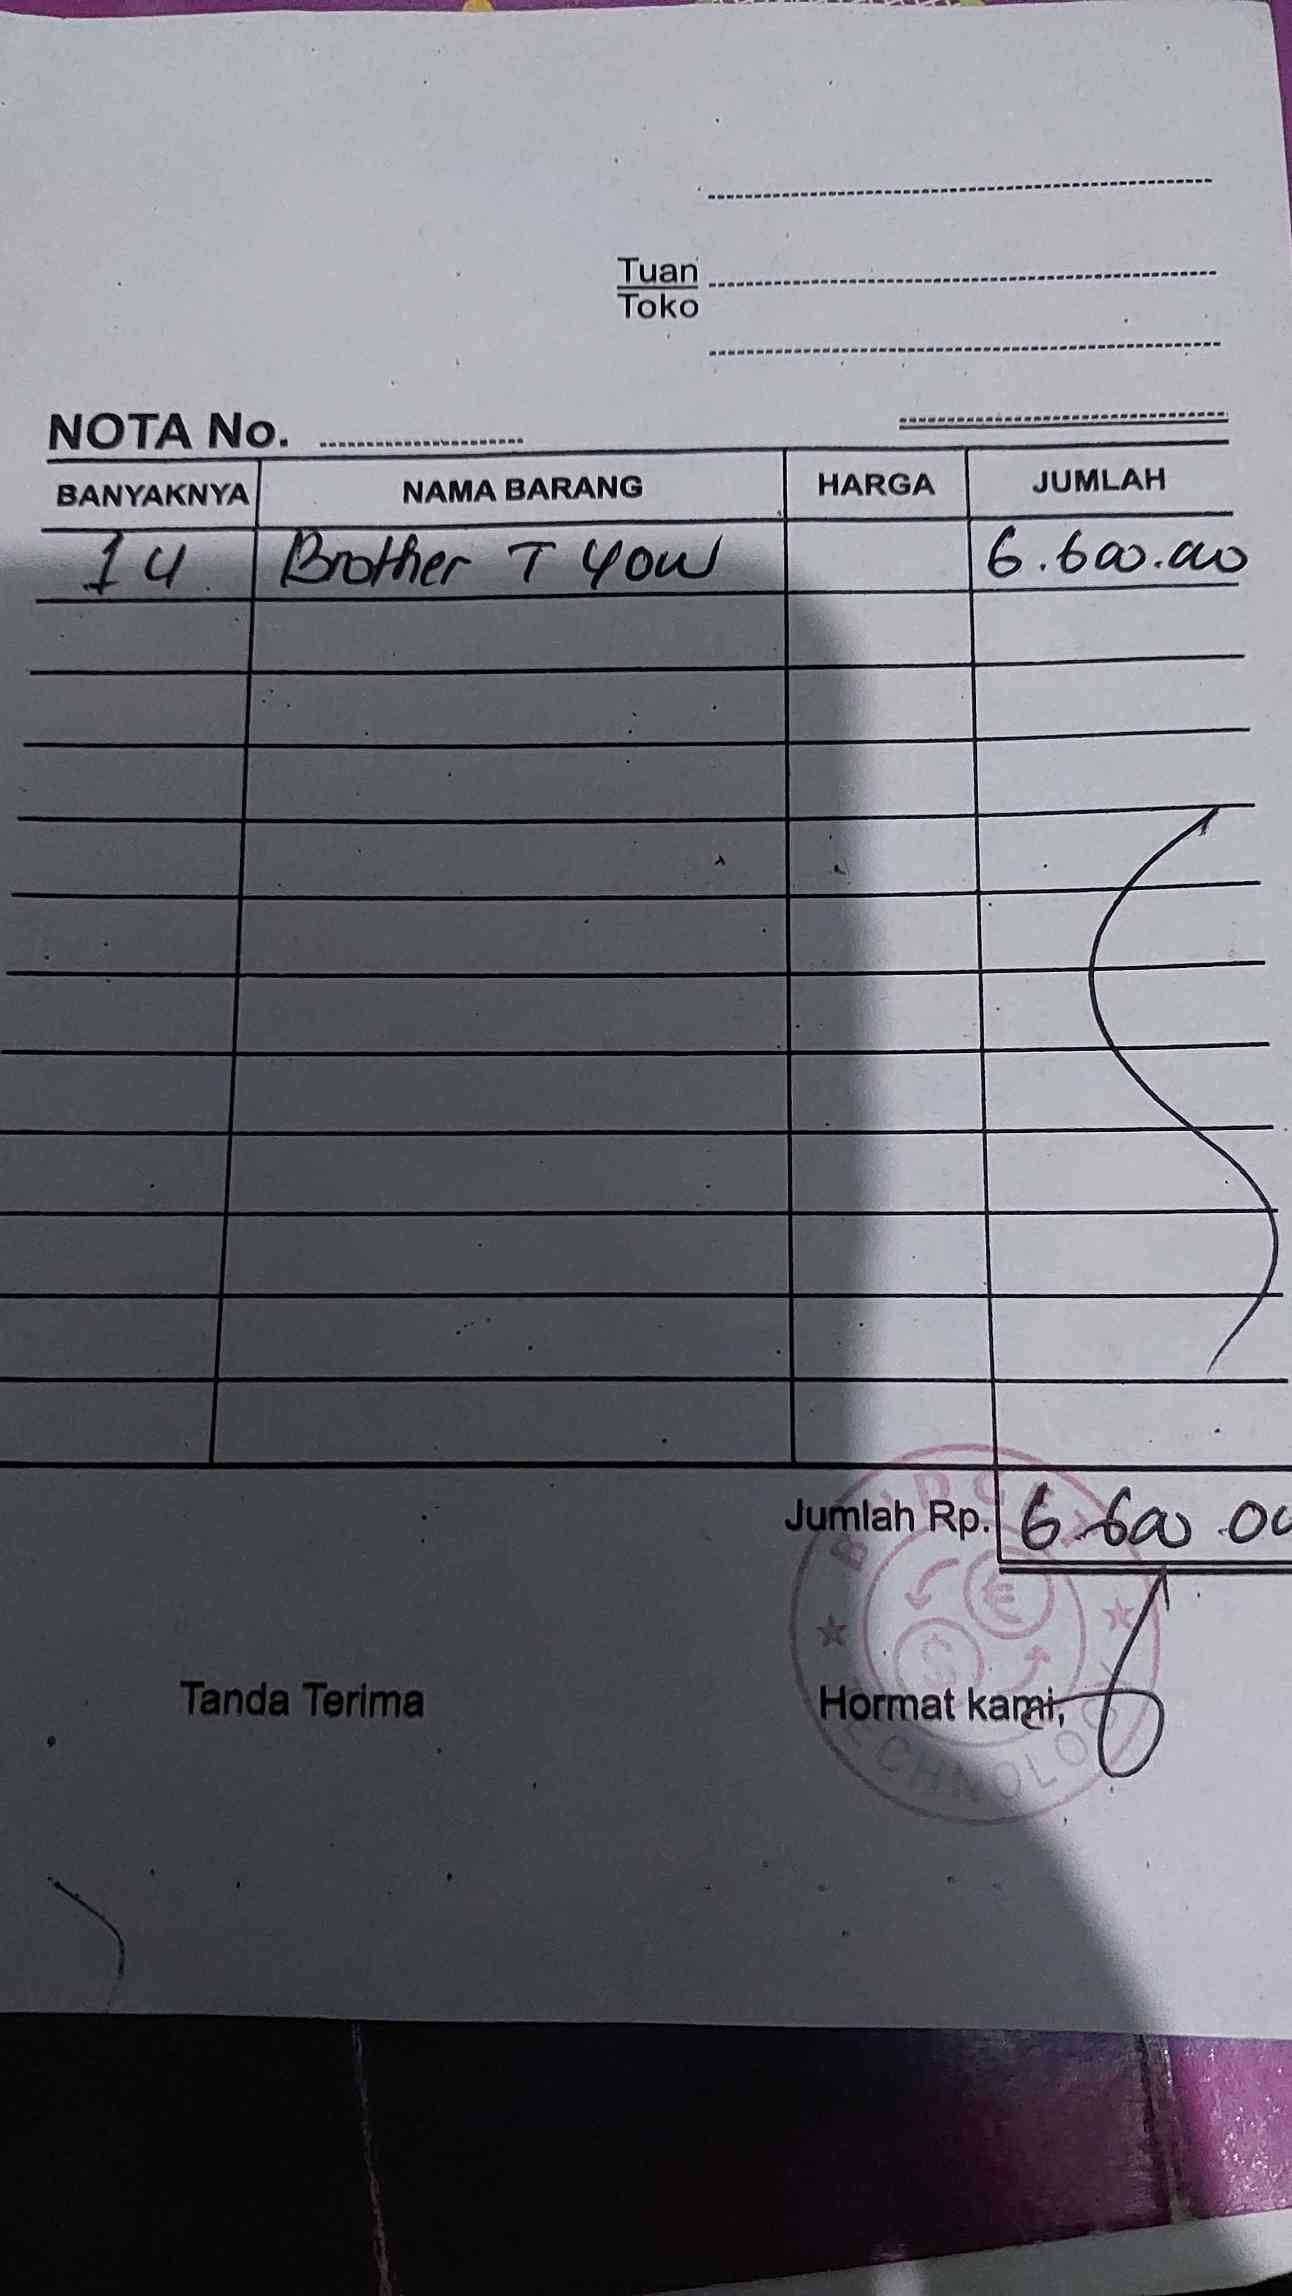 Tuan
Toko
NOTA No.
BANYAKNYA NAMA BARANG HARGA JUMLAH
1 u Brother T 40W 6.600.000
Jumlah Rp. 6.600 00
Tanda Terima Hormat kami,